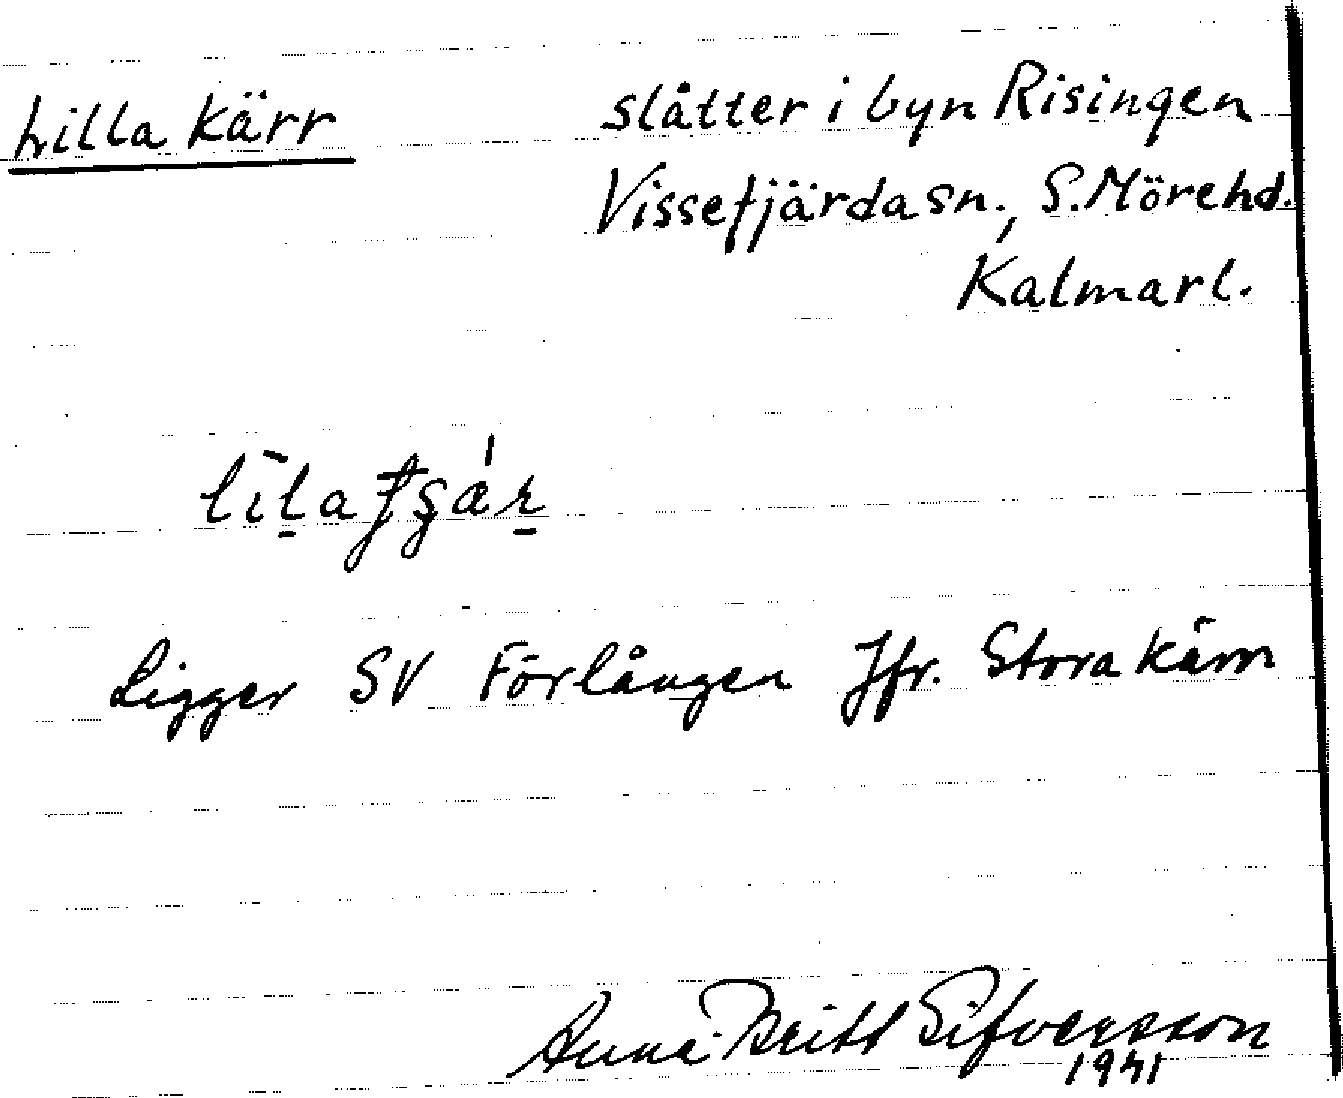 Lilla kärr slåtter i byn Risingen
Vissefjärda sn., S. Möre hd.
Kalmar l.
Ligger SV Förlången Jfr. Stora kärr
Anna-Britt Sifversson
1941